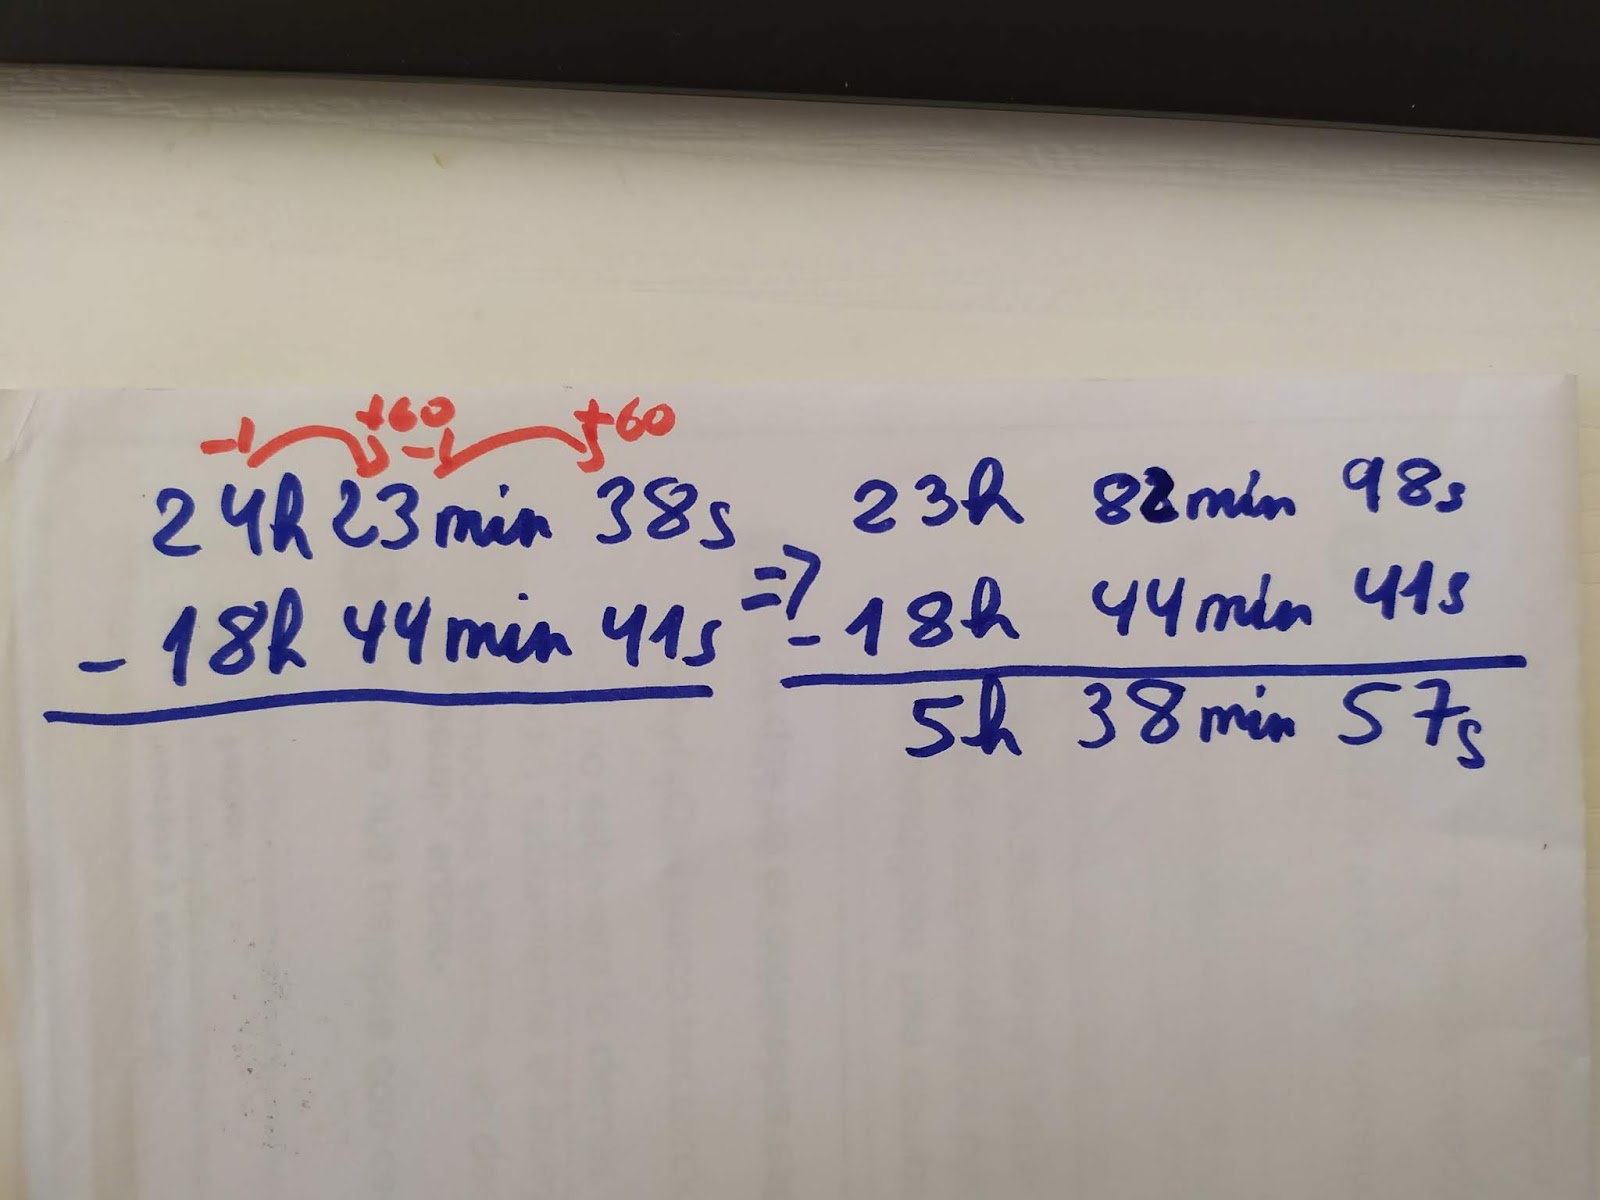 -1 +60 -1 +60
24h 23min 38s
- 18h 44min 41s
=>
23h 82min 98s
- 18h 44min 41s
5h 38min 57s